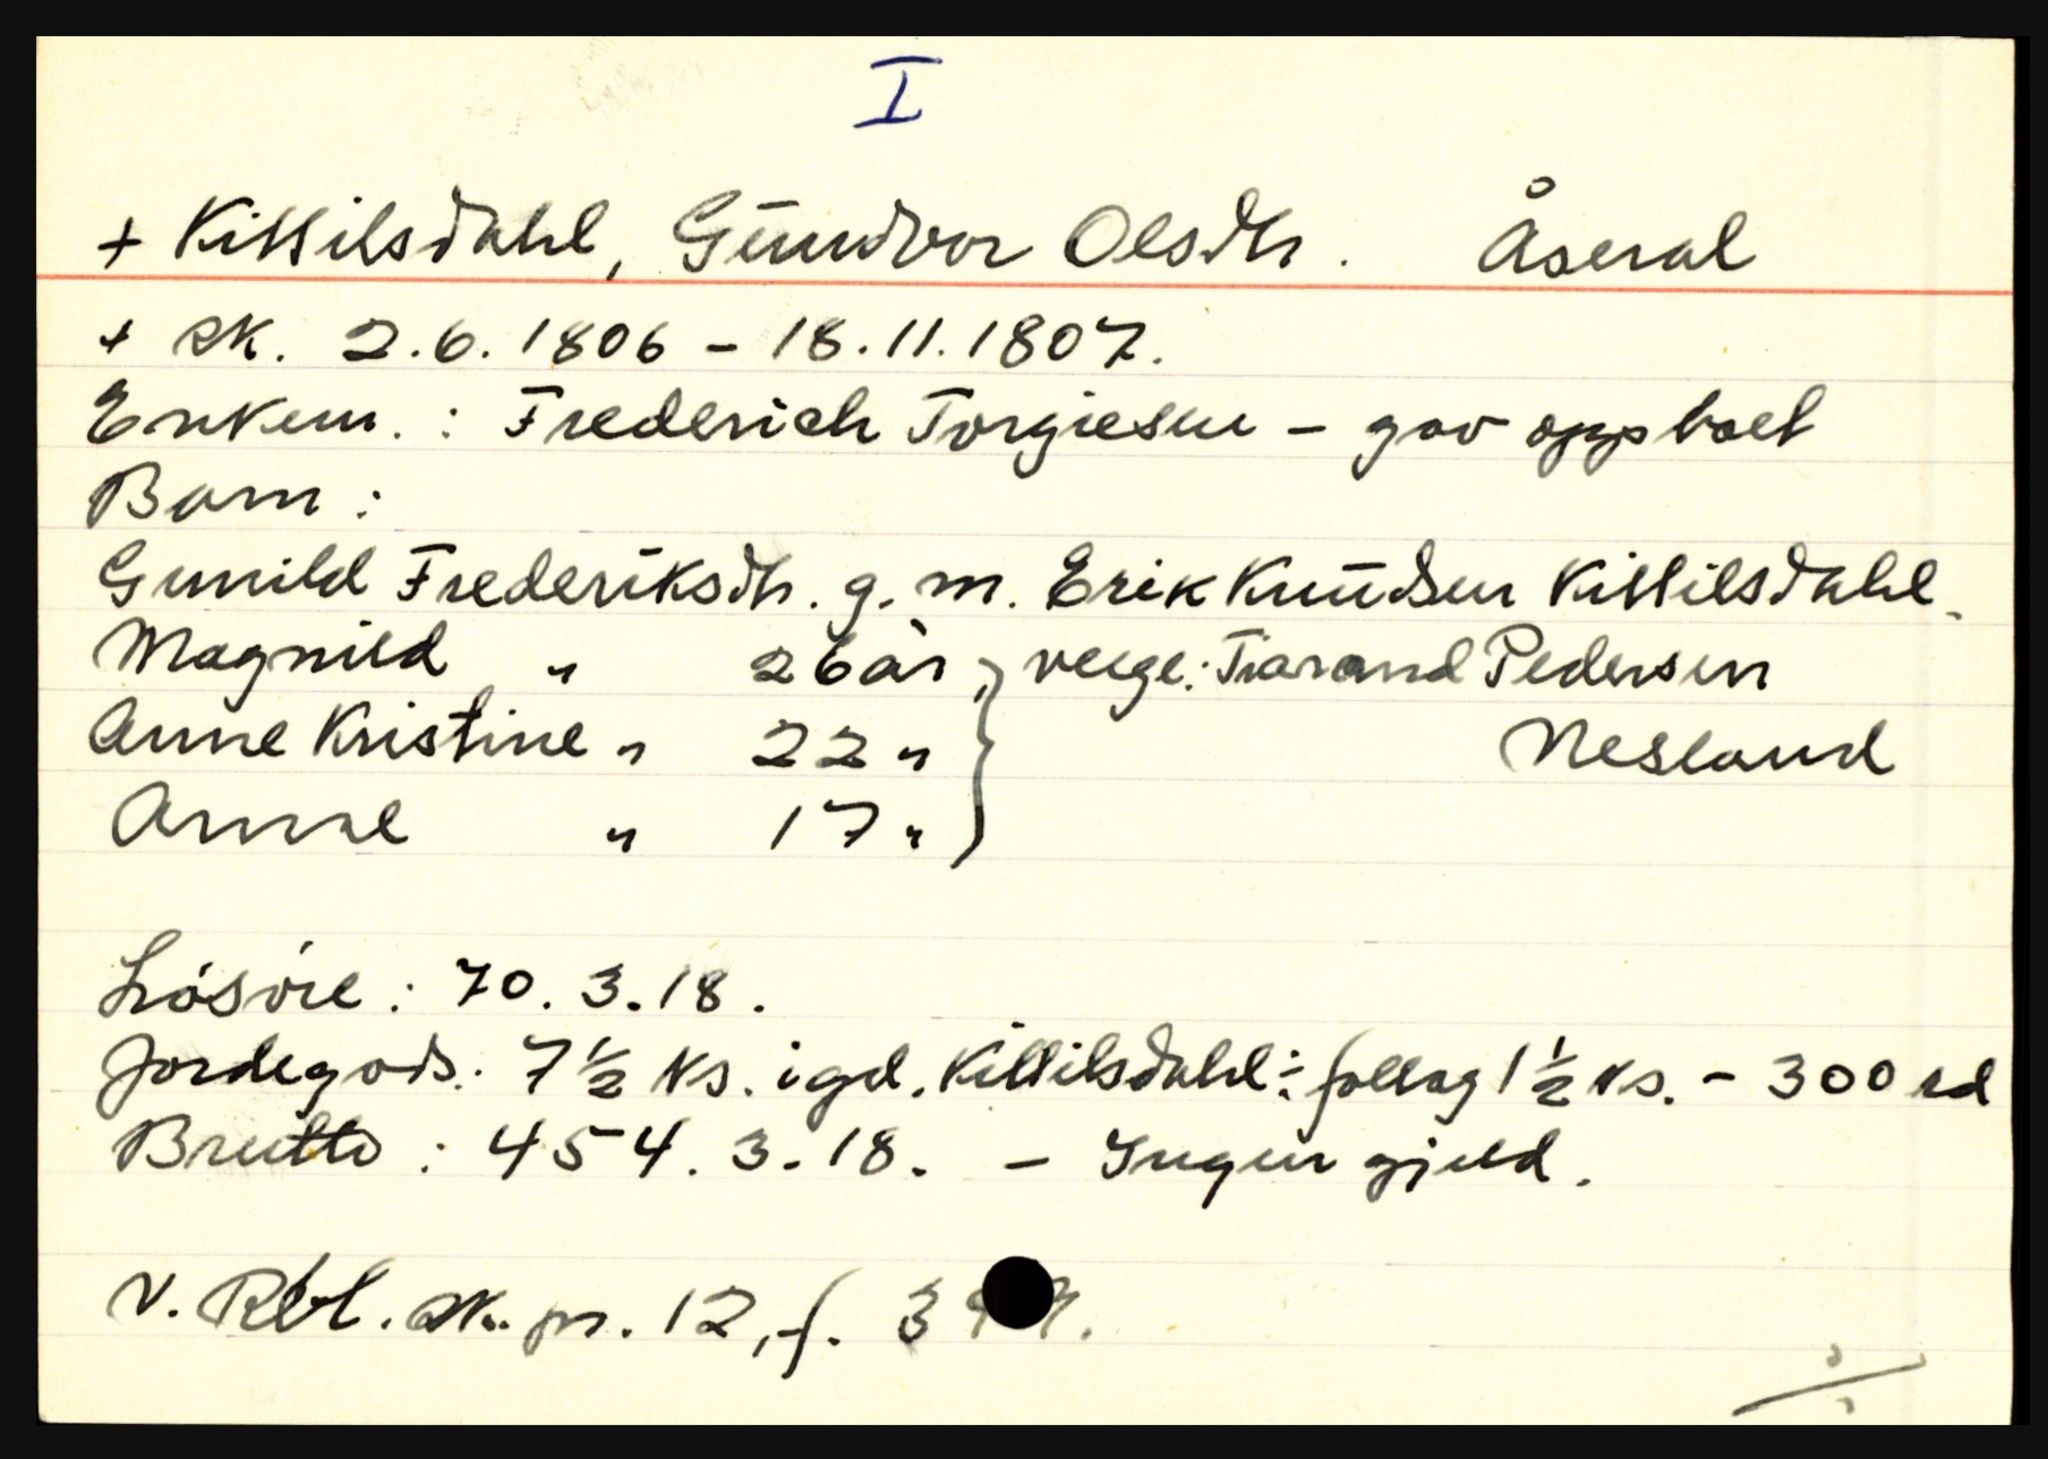 I
+ Kittilsdahl, Gundvor Olsdtr. Åseral
+ sk. 2.6.1806 - 18.11.1807.
Enkem.: Frederich Torgiesen - gav opp boet
Barn:
Gunild Frederiksdtr. g. m. Erik Knudsen Kittilsdahl.
Magnild " 26 år } verge: Tiarand Pedersen
Anne Kristine " 22 " } Nesland
Anne " 17 " }
Lösöre: 70. 3. 18.
Jordegods: 7 1/2 ks. i gd. Kittilsdahl ÷ follog 1 1/2 ks. - 300 rd
Brutto: 454. 3. 18. - Ingen gjeld.
V. Rbl. sk. pr. 12, f. 3
÷